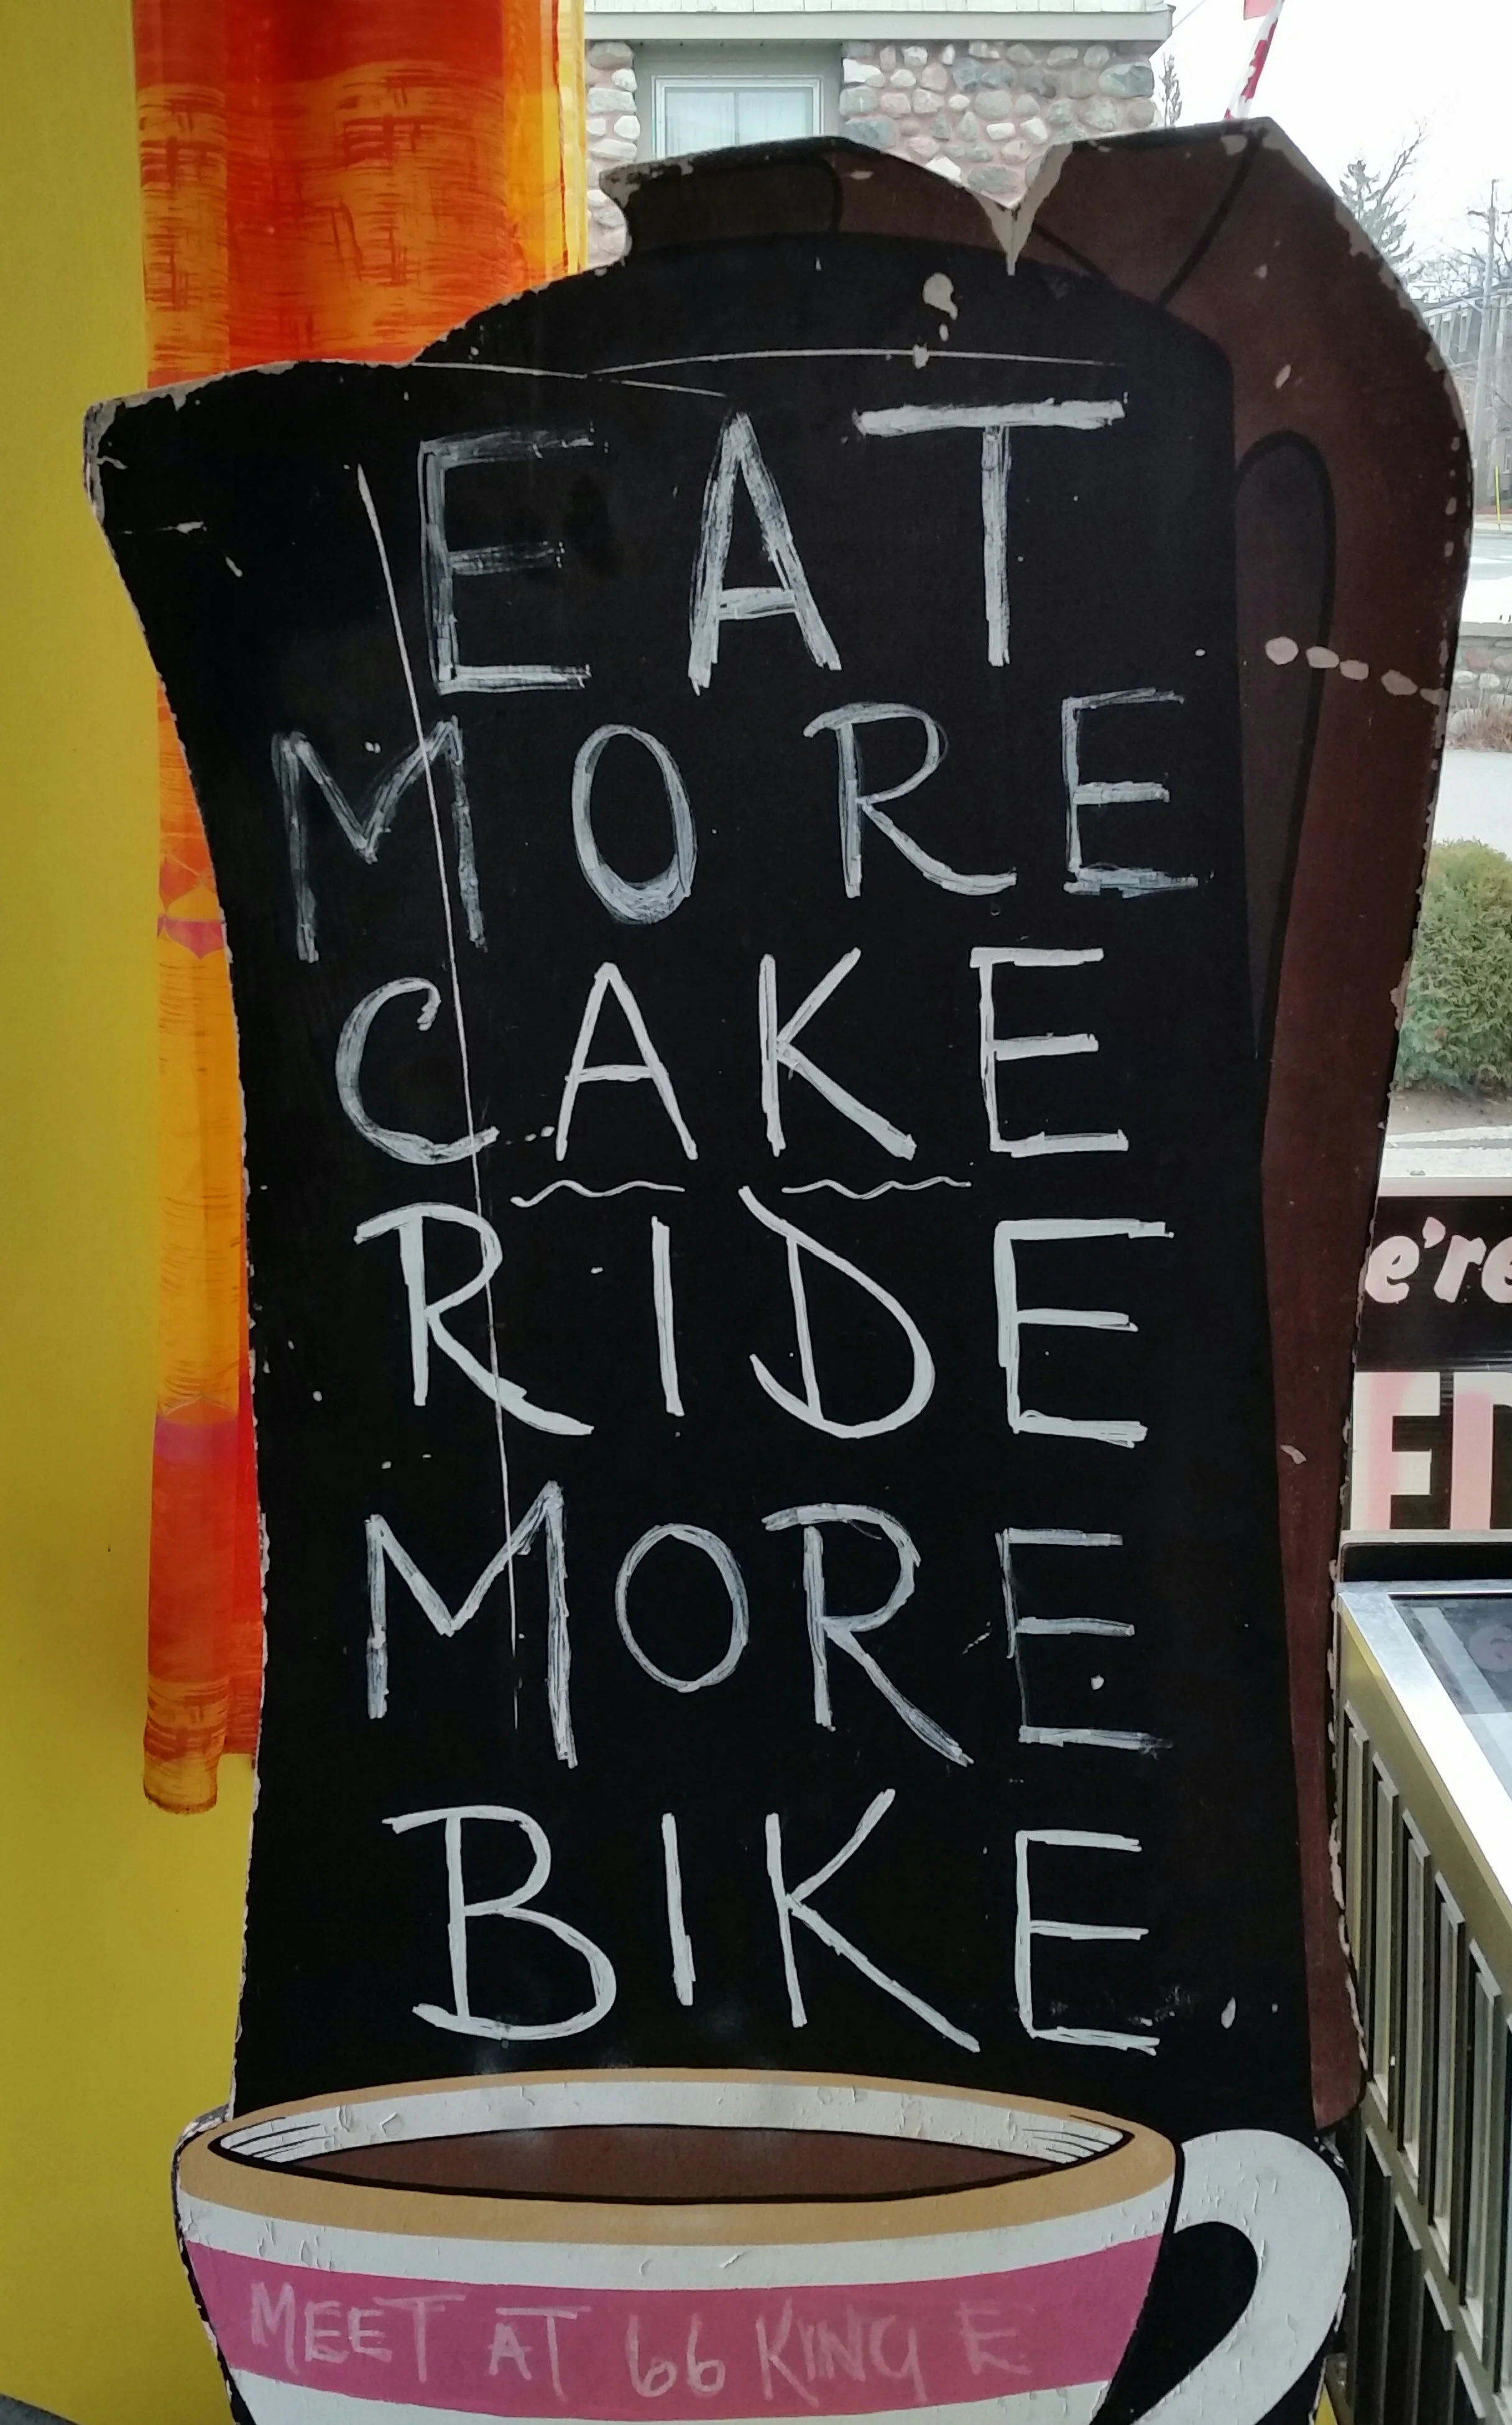 EAT
MORE
CAKE
RIDE
MORE
BIKE
MEET AT 66 KING E
e're